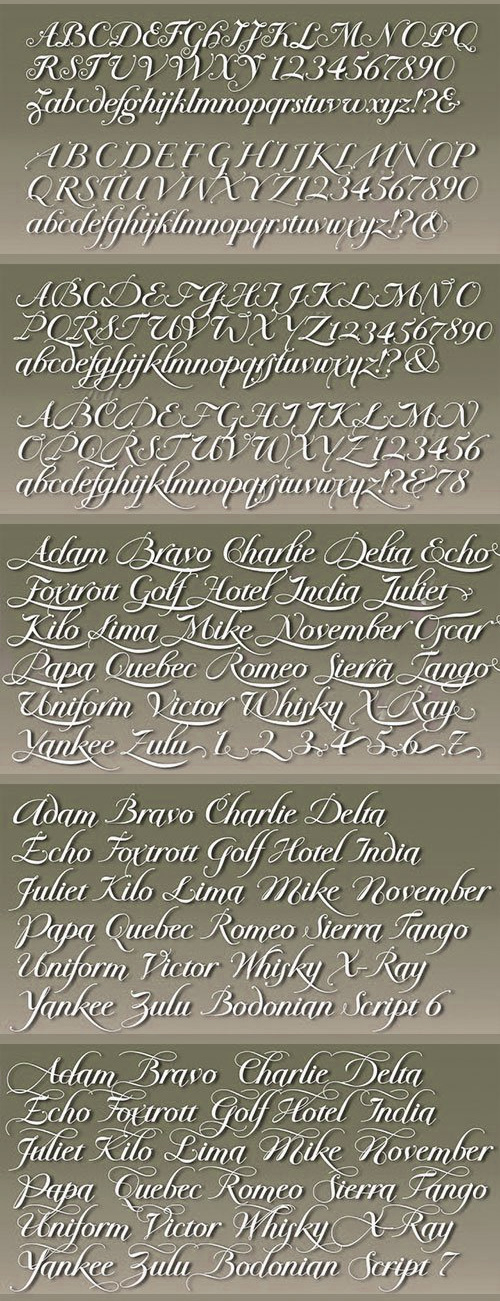 ABCDEFGHIJKLMNOPQ
RSTUVWXY 1234567890
Zabcdefghijklmnopqrstuvwxyz!?&
ABCDEFGHIJKLMNOP
QRSTUVWXYZ1234567890
abcdefghijklmnopqrstuvwxyz!?&
ABCDEFGHIJKLMNO
PQRSTUVWXYZ1234567890
abcdefghijklmnopqrstuvwxyz!?&
ABCDEFGHIJKLMN
OPQRSTUVWXYZ123456
abcdefghijklmnopqrstuvwxyz!?&78
Adam Bravo Charlie Delta Echo
Foxtrott Golf Hotel India Juliet
Kilo Lima Mike November Oscar
Papa Quebec Romeo Sierra Tango
Uniform Victor Whisky X-Ray
Yankee Zulu 1 2 3 4 5 6 7
Adam Bravo Charlie Delta
Echo Foxtrott Golf Hotel India
Juliet Kilo Lima Mike November
Papa Quebec Romeo Sierra Tango
Uniform Victor Whisky X-Ray
Yankee Zulu Bodonian Script 6
Adam Bravo Charlie Delta
Echo Foxtrott Golf Hotel India
Juliet Kilo Lima Mike November
Papa Quebec Romeo Sierra Tango
Uniform Victor Whisky X-Ray
Yankee Zulu Bodonian Script 7